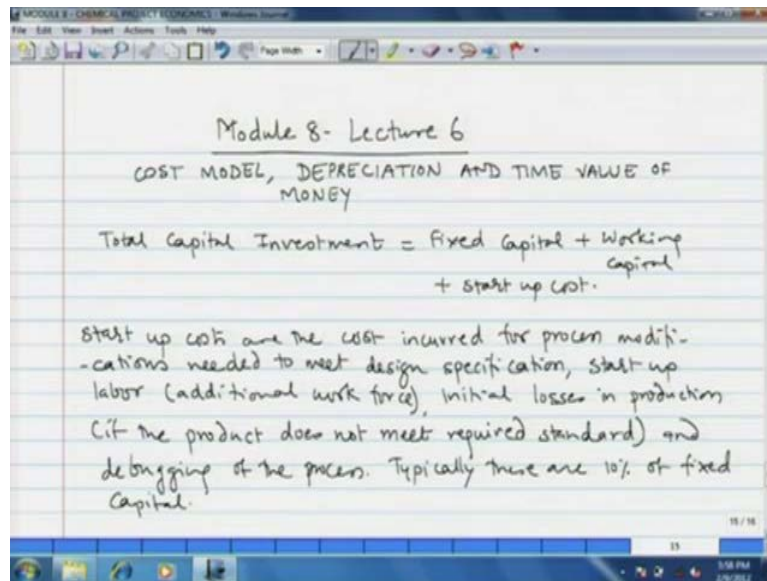 MODULE 8 - CHEMICAL PROJECT ECONOMICS - Windows Journal
File Edit View Insert Actions Tools Help
Page Width
Module 8- Lecture 6
COST MODEL, DEPRECIATION AND TIME VALUE OF
MONEY
Total Capital Investment = Fixed Capital + Working
Capital
+ Start up cost.
Start up costs are the cost incurred for process modifi-
-cations needed to meet design specification, start up
labor (additional work force), initial losses in production
(if the product does not meet required standard) and
debugging of the process. Typically these are 10% of fixed
Capital.
15 / 16
15
3:58 PM